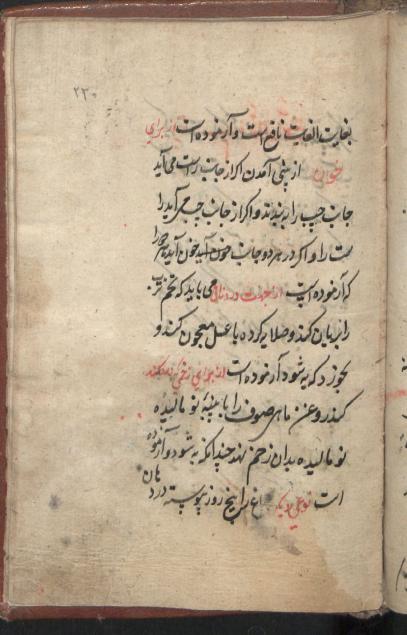 ۲۳۰
بغایت الغایت نافع است و آزموده است از برای
خون از بینی آمدن اکر از جانب راست می آید
جانب چپ را ببندند و اکر از جانب چپ می آید را
ست را و اکر در هر دو جانب خون آید هر دو را
که آزموده است از جهت درد می باید که تخم ترب
را بریان کند و صلایه کرده با عسل معجون کند و
بخورد که به شود آزموده است از برای زخمی که
کند روغن ماهی صوف را با پنبه نو مالیده
نو مالیده بدان زخم نهد چندانکه به شود و آزموده
است نوعی دیکر را پنج روز پیوسته در دهان